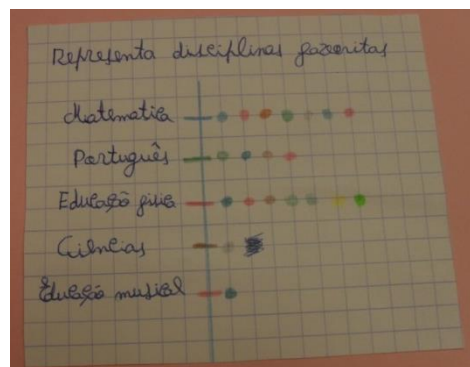 Representa disciplinas favoritas
Matematica
Português
Educação fisica
Ciências
Educação musical